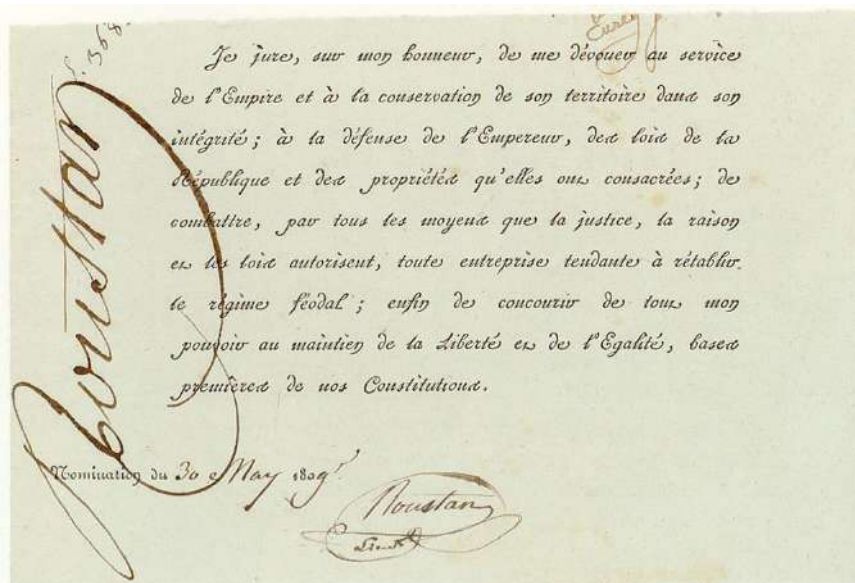 S. 368.
Je jure, sur mon honneur, de me dévouer au service
de l'Empire et à la conservation de son territoire dans son
intégrité ; à la défense de l'Empereur, des lois de la
République et des propriétés qu'elles ont consacrées ; de
combattre, par tous les moyens que la justice, la raison
et les lois autorisent, toute entreprise tendante à rétablir
le régime féodal ; enfin de concourir de tout mon
pouvoir au maintien de la Liberté et de l'Egalité, bases
premières de nos Constitutions.
Roustan
Nomination du 30 May 1809
Roustan